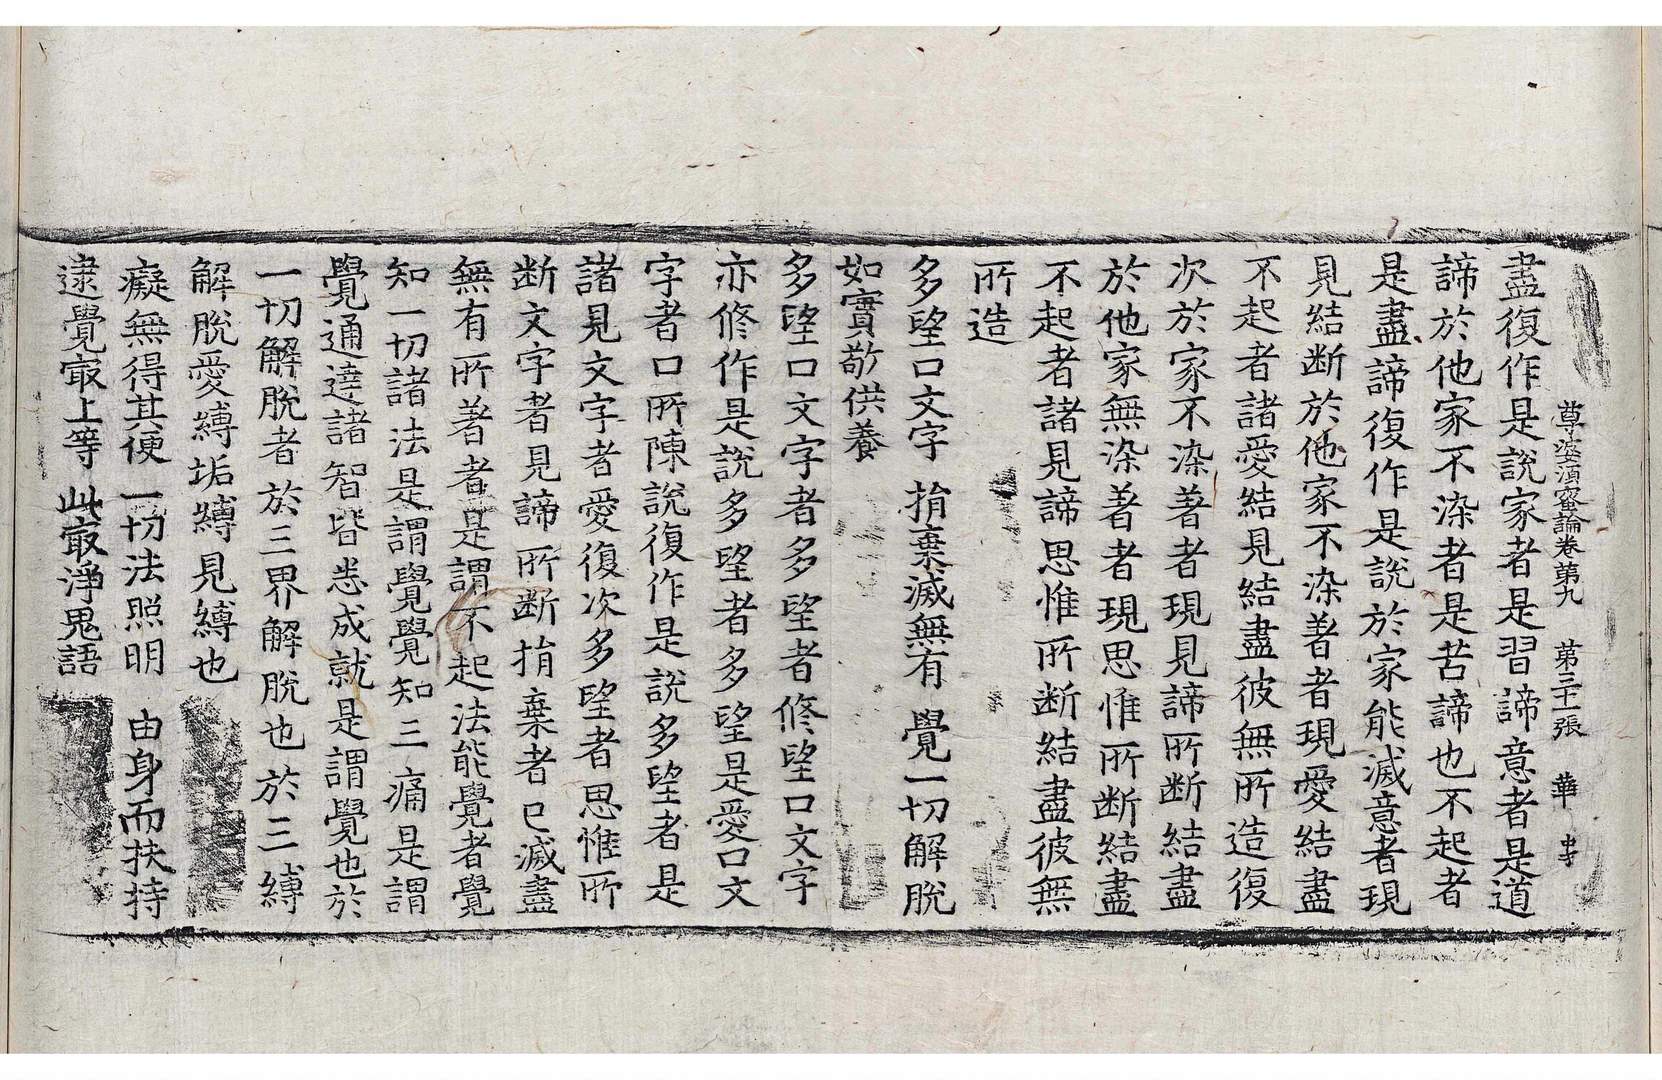 尊婆須蜜論卷第九　第三十一張　華　忠
盡復作是說家者是習諦意者是道
諦於他家不染者是苦諦也不起者
是盡諦復作是說於家能滅意者現
見結断於他家不染著者現愛結盡
不起者諸愛結見結盡彼無所造復
次於家不染著者現見諦所断結盡
於他家無染著者現思惟所断結盡
不起者諸見諦思惟所断結盡彼無
所造
多望口文字　捐棄滅無有　覺一切解脫
如實敬供養
多望口文字者多望者修望口文字
亦修作是說多望者多望是愛口文
字者口所陳說復作是說多望者是
諸見文字者愛復次多望者思惟所
断文字者見諦所断捐棄者已滅盡
無有所著者是謂不起法能覺者覺
知一切諸法是謂覺覺知三痛是謂
覺通達諸智皆悉成就是謂覺也於
一切解脫者於三界解脫也於三縛
解脫愛縛垢縛見縛也
癡無得其便　一切法照明　由身而扶持
逮覺㝡上等　此㝡淨鬼語